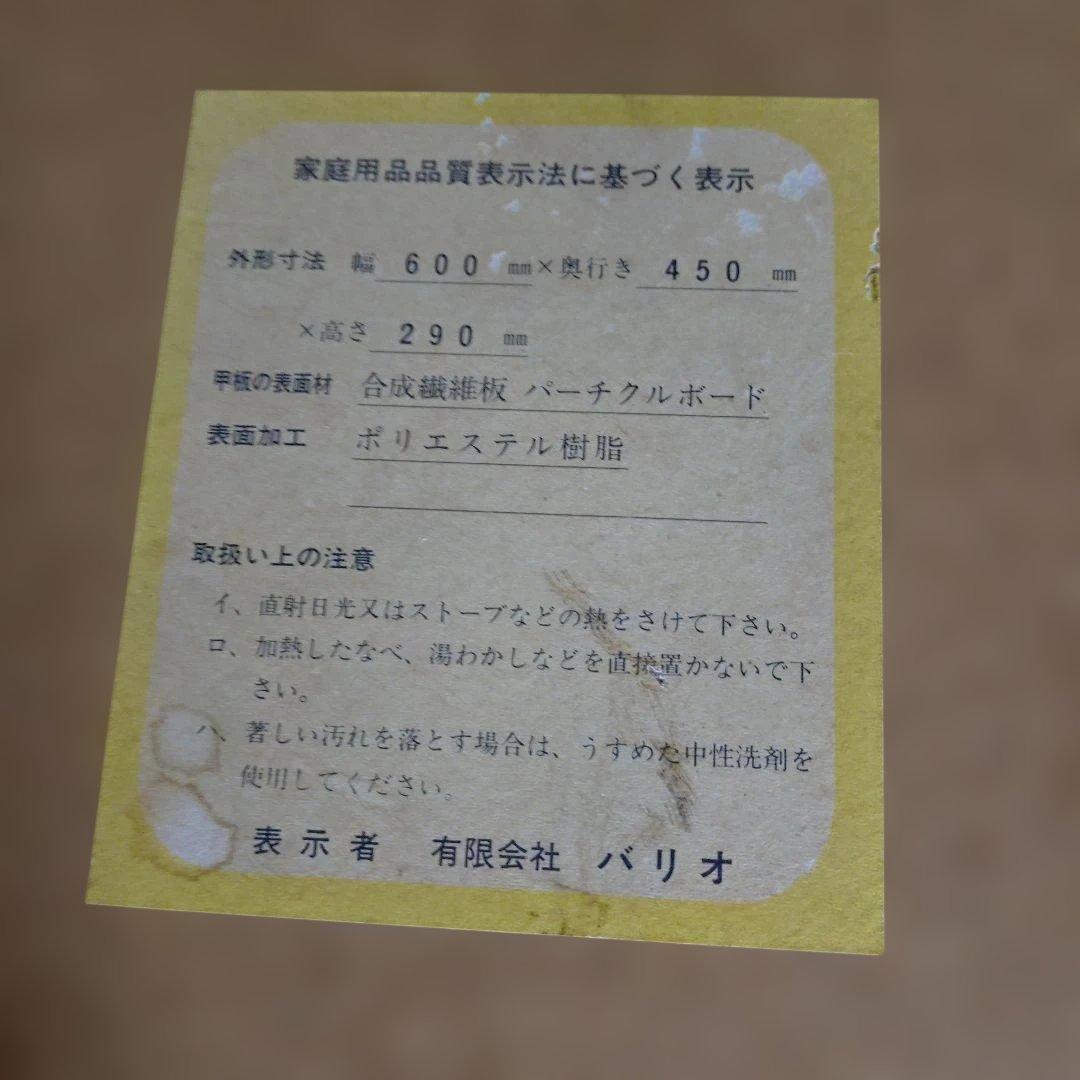 家庭用品品質表示法に基づく表示
外形寸法 幅 600 mm×奥行き 450 mm
×高さ 290 mm
甲板の表面材 合成繊維板 パーチクルボード
表面加工 ポリエステル樹脂
取扱い上の注意
イ、直射日光又はストーブなどの熱をさけて下さい。
ロ、加熱したなべ、湯わかしなどを直接置かないで下
さい。
ハ、著しい汚れを落とす場合は、うすめた中性洗剤を
使用してください。
表示者 有限会社 バリオ